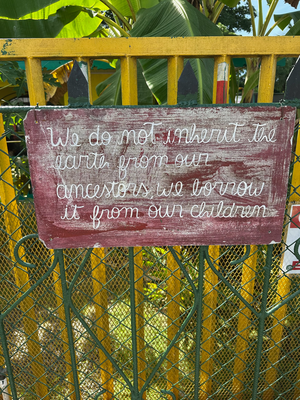 We do not inherit the
earth from our
ancestors, we borrow
it from our children